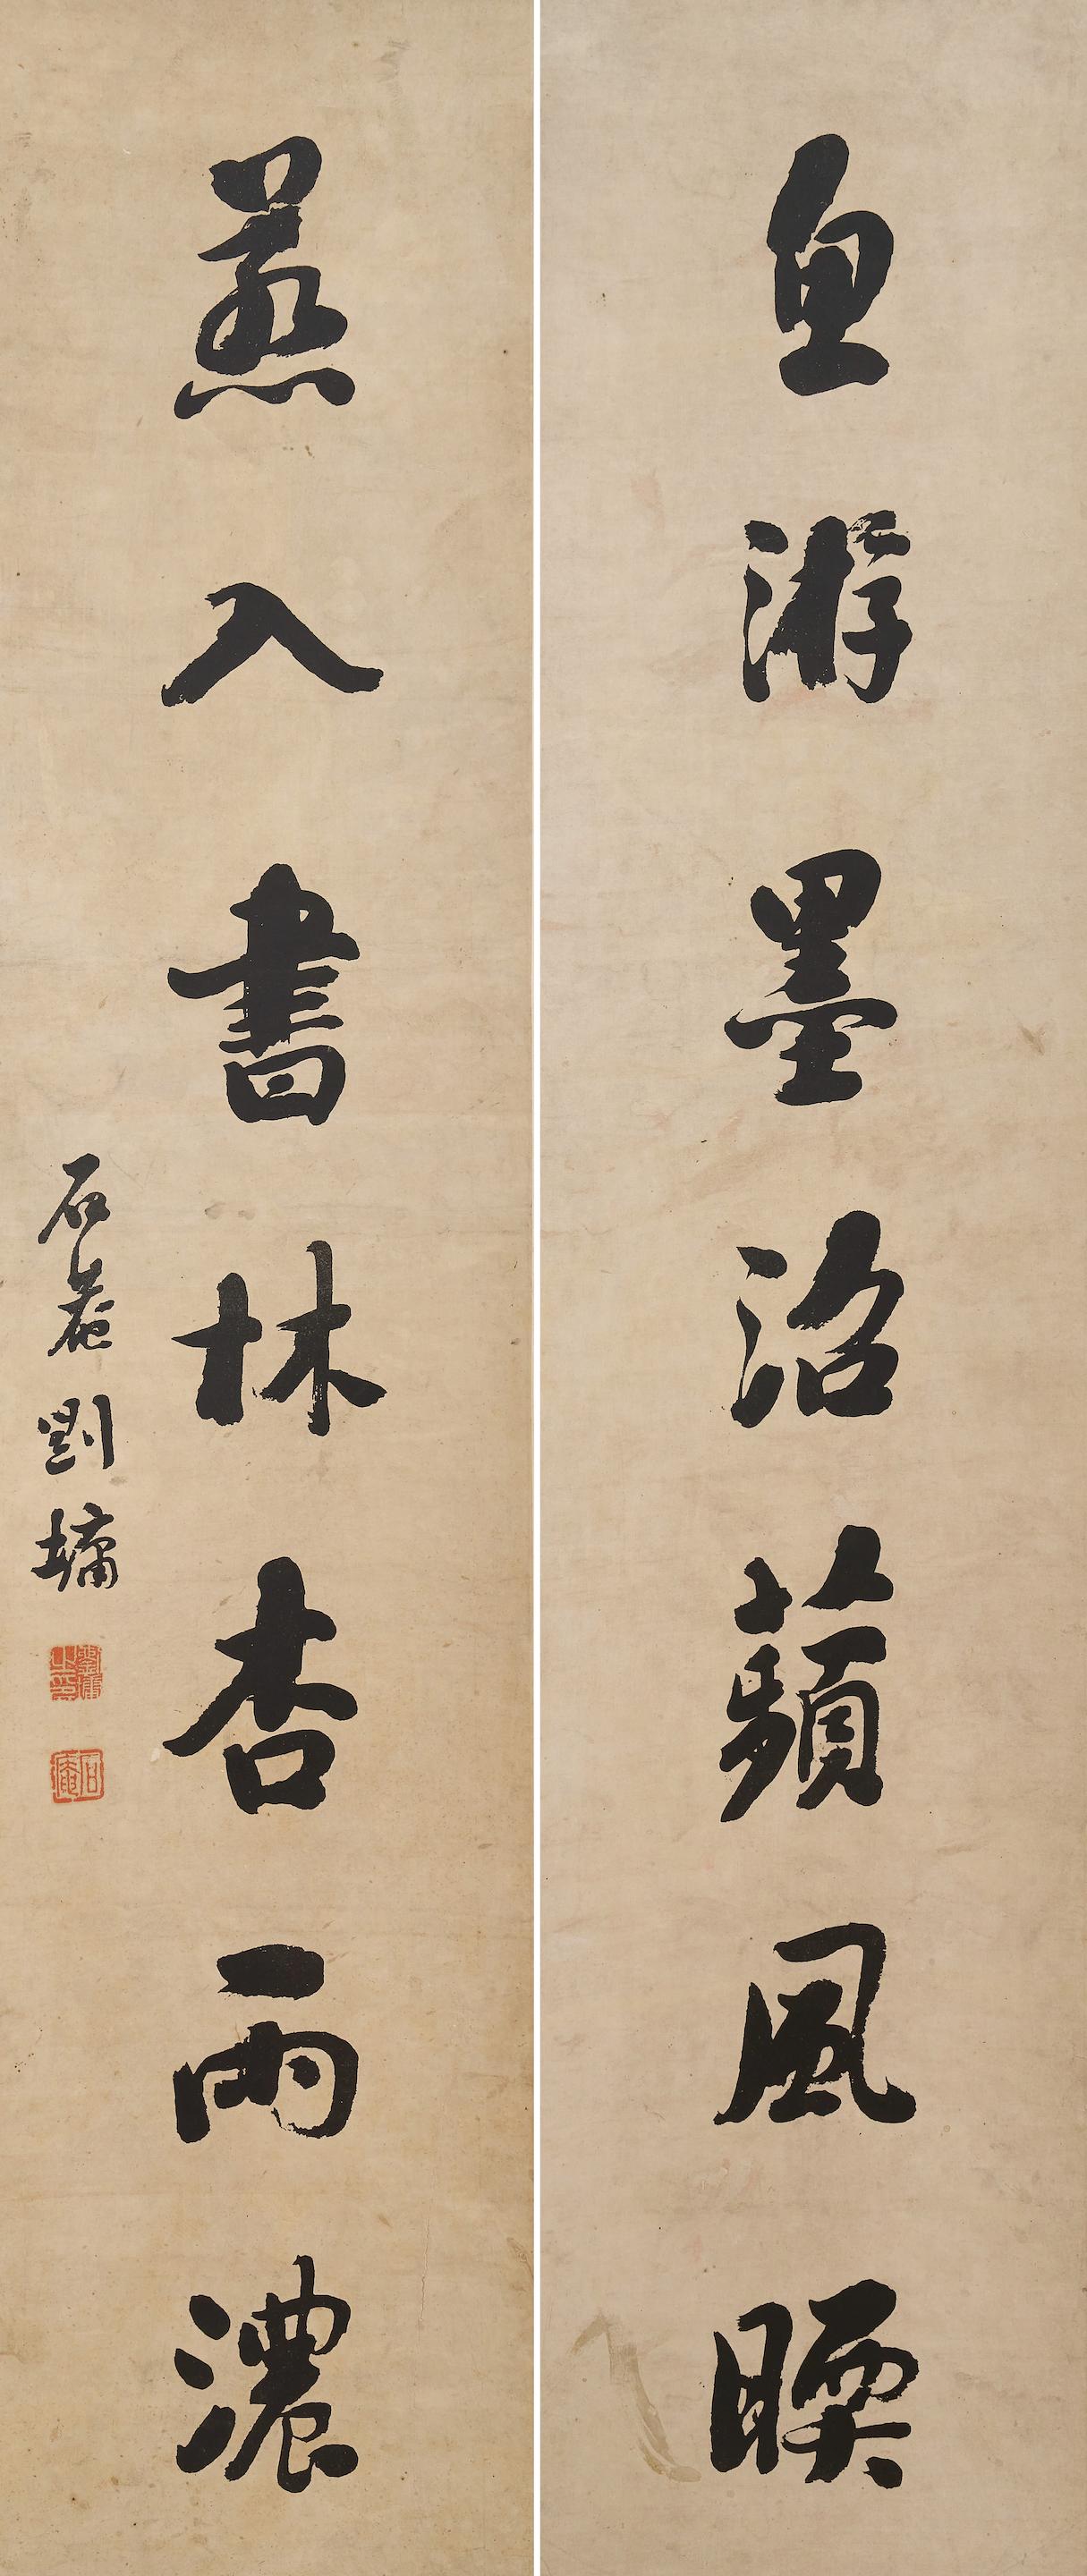 魚游墨沼蘋風暖
燕入書林杏雨濃
石菴劉墉
劉墉之印
石庵